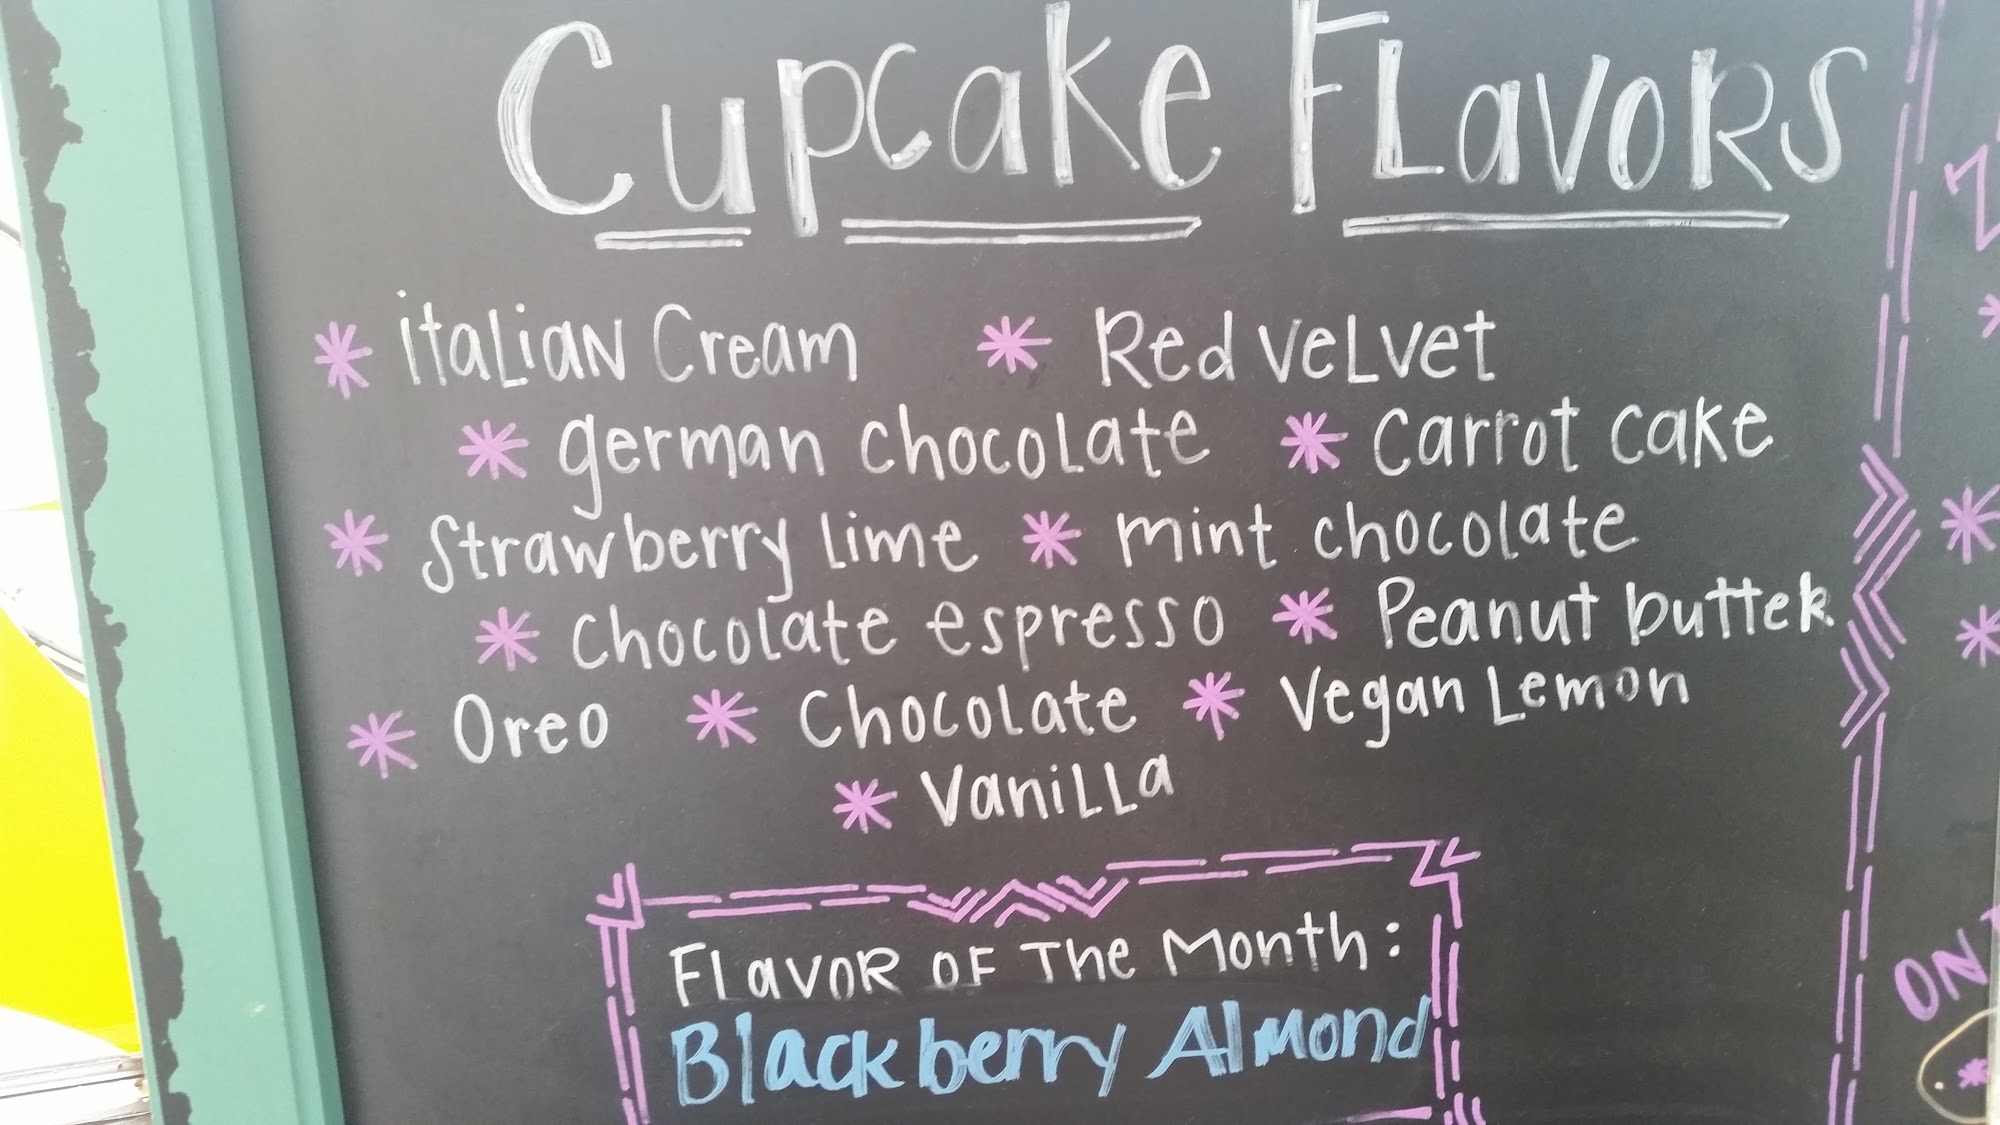 Cupcake Flavors
* italian Cream * Red velvet
* german chocolate * carrot cake
* Strawberry lime * mint chocolate
* chocolate espresso * Peanut butter
* Oreo * Chocolate * Vegan Lemon
* Vanilla
Flavor of The Month:
Blackberry Almond
ON